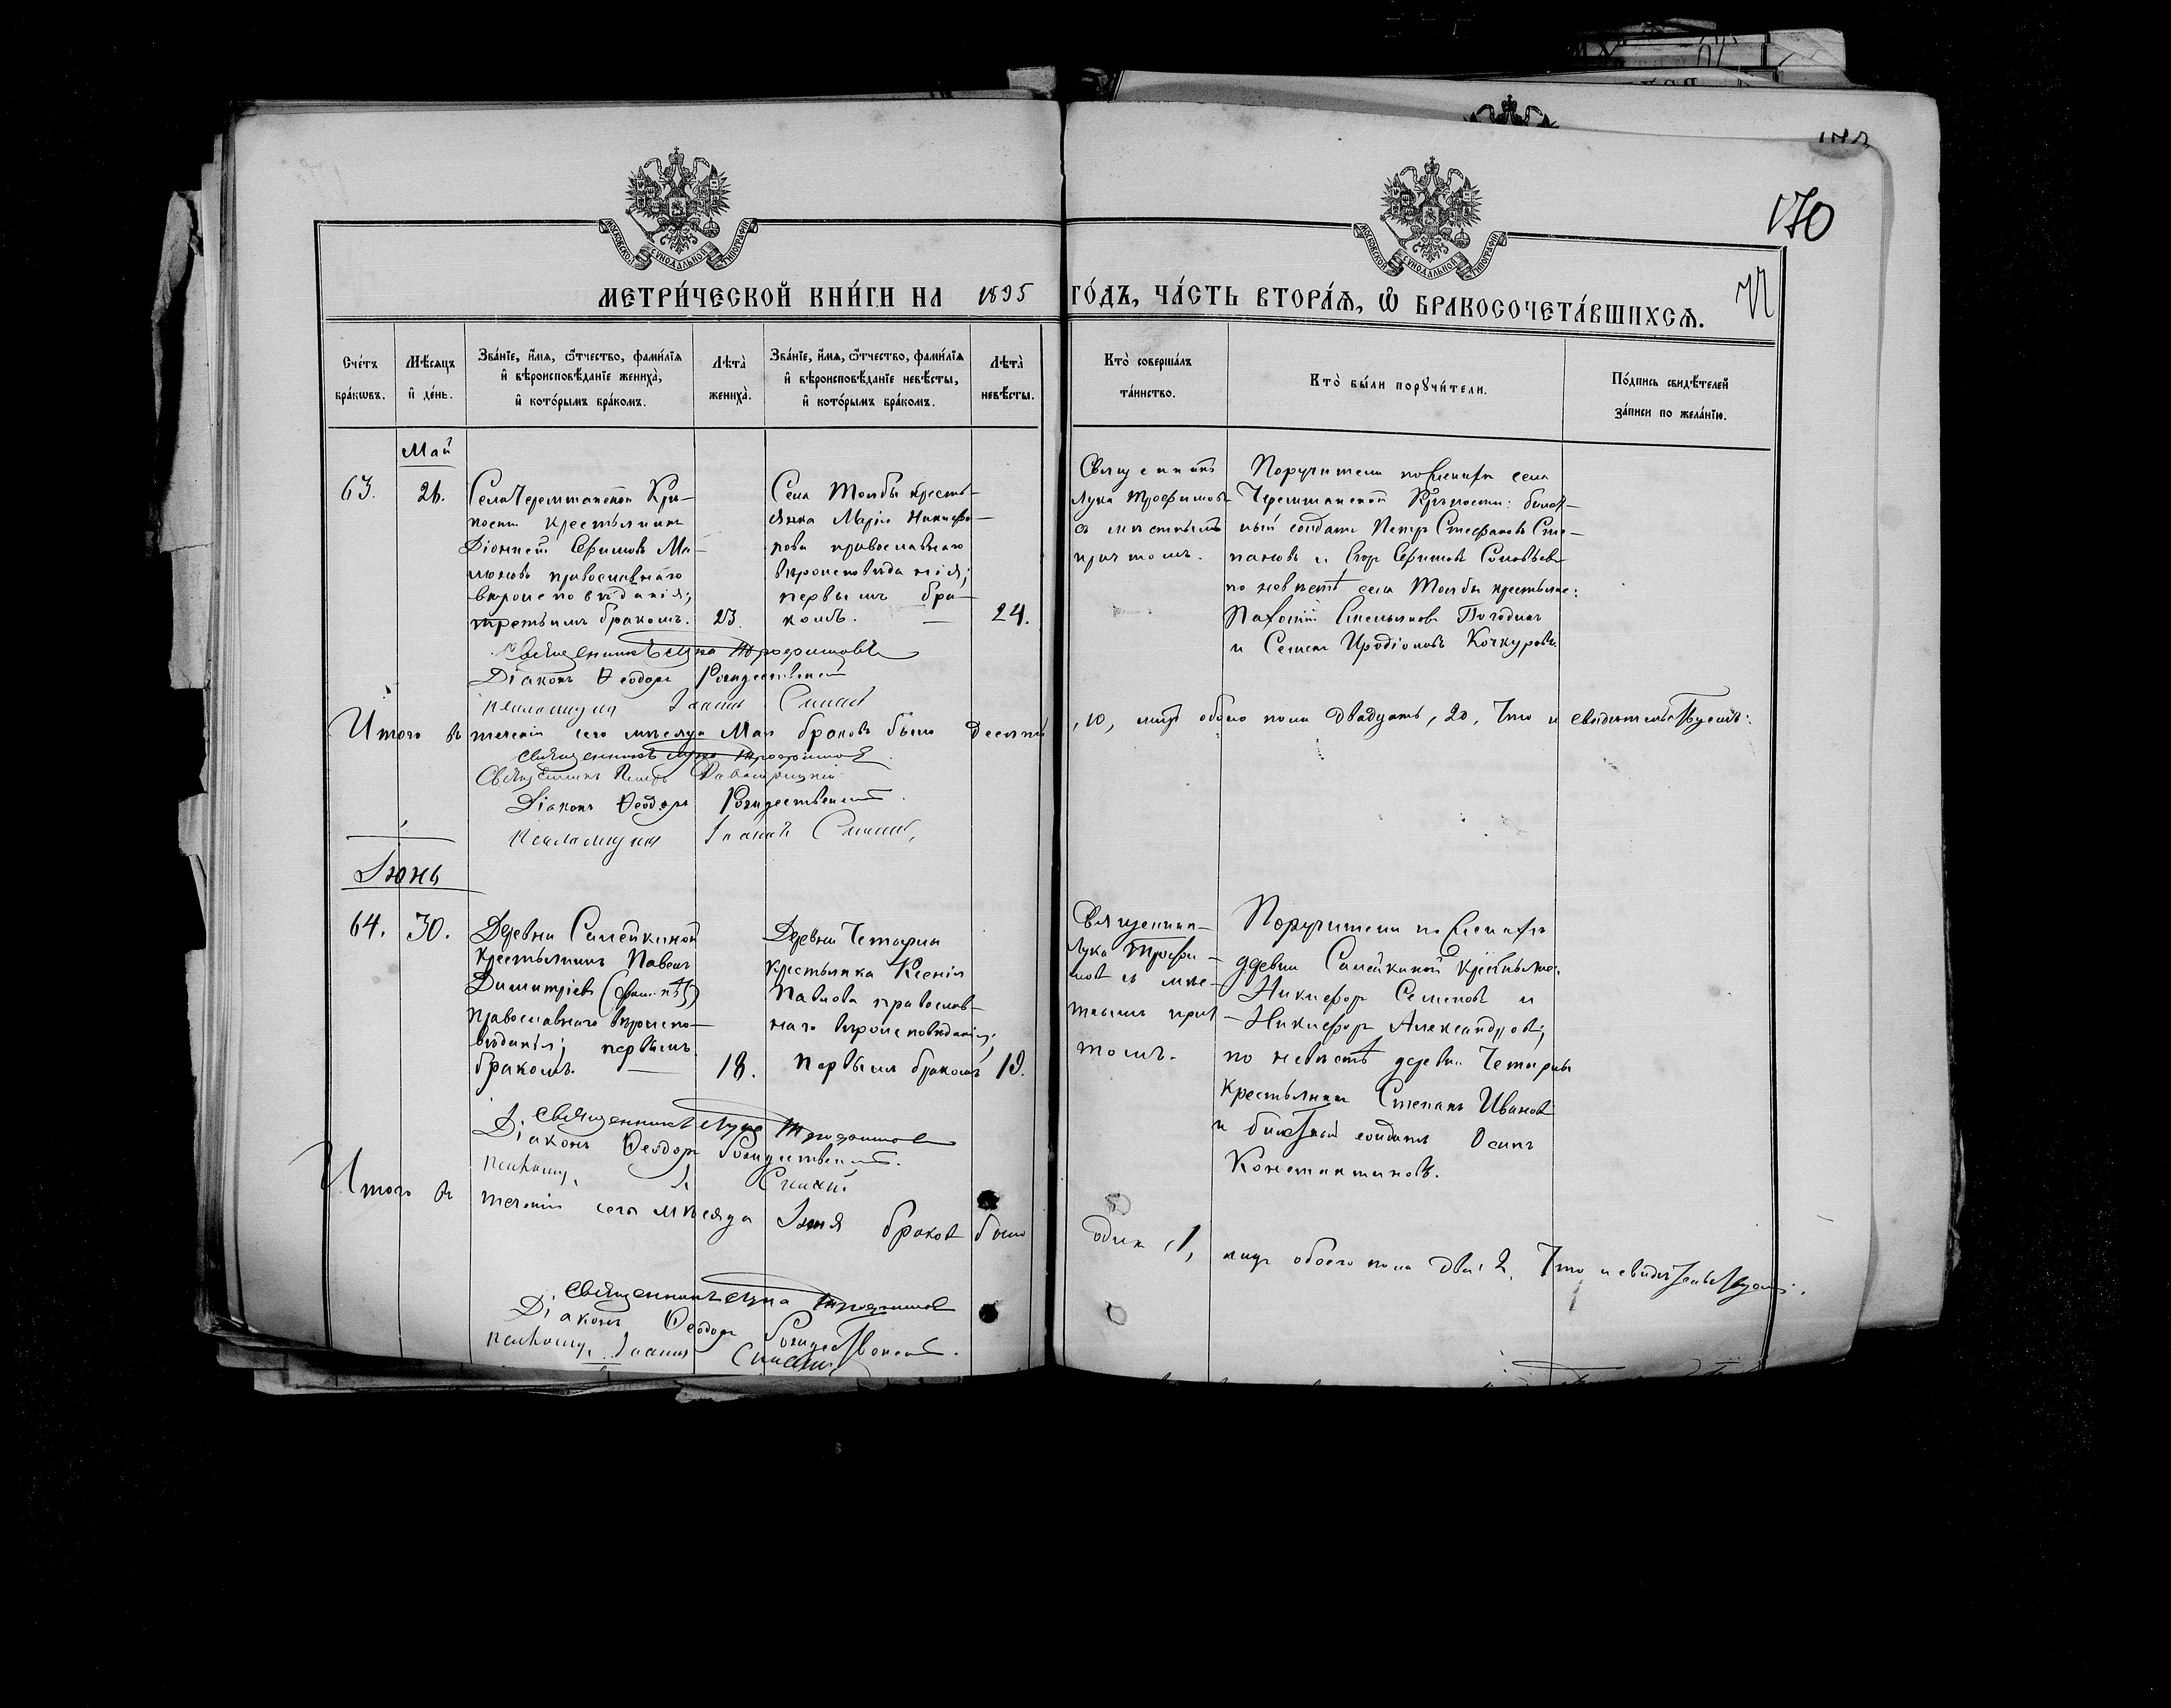 170
МОСКОВСКОЙ СѴНОДАЛЬНОЙ ТИПОГРАФІИ
МОСКОВСКОЙ СѴНОДАЛЬНОЙ ТИПОГРАФІИ
МЕТРИ́ЧЕСКОЙ КНИ́ГИ НА 1895 ГО́ДЪ, ЧА́СТЬ ВТОРА́Ѧ, Ѽ БРАКОСОЧЕТА́ВШИХСѦ.
Сче́тъ бра́кѡвъ.
Мѣ́сѧцъ и҆ де́нь.
Зва́нїе, и҆́мѧ, ѻ҆́тчество, фами́лїѧ и҆ вѣроисповѣ́данїе жениха̀, и҆ кото́рымъ бра́комъ.
Лѣта̀ жениха̀.
Зва́нїе, и҆́мѧ, ѻ҆́тчество, фами́лїѧ и҆ вѣроисповѣ́данїе невѣ́сты, и҆ кото́рымъ бра́комъ.
Лѣта̀ невѣ́сты.
Кто̀ соверша́лъ та́инство.
Кто̀ бы́ли порꙋчи́тели.
По́дпись свидѣ́телей за́писи по жела́нїю.
Май
63.
26.
Села Черемшанской Крѣ-
пости крестьянинъ
Діонисій Ефимовъ
православнаго
вѣроисповѣданія;
третьимъ бракомъ.
23.
Села Толбы кресть-
янка Марія Никифо-
рова православнаго
вѣроисповѣданія;
первымъ бра-
комъ.
24.
Священникъ
Лука Трофимовъ
съ мѣстнымъ
причтомъ.
Поручители по женихѣ села
Черемшанской Крѣпости: билет-
ный солдатъ Петръ Стефановъ Сте-
пановъ и Егор Ефимовъ Соловьевъ
по невѣстѣ села Толбы крестьяне:
Пахомій Емельяновъ Погодинъ
и Семенъ Иродіоновъ Кочкуровъ.
Священникъ Лука Трофимовъ
Діаконъ Ѳеодоръ Рождественскій
Псаломщикъ Іоаннъ
Итого въ теченіи сего мѣсяца Мая браковъ было десять, 10, лицъ обоего пола двадцать, 20, Что и свидѣтельствуемъ:
Священникъ Лука Трофимовъ
Священникъ Петръ
Діаконъ Ѳеодоръ Рождественскій.
Псаломщикъ Іоаннъ
Іюнь
64.
30.
Деревни Самейкиной
крестьянинъ Павелъ
Димитріевъ
православнаго вѣроиспо-
вѣданія; первымъ
бракомъ.
18.
Деревни Четырлы
крестьянка Ксенія
Павлова православ-
наго вѣроисповѣданія;
первымъ бракомъ
19.
Священник-
Лука Трофи-
мовъ съ мѣс-
тнымъ прич-
томъ.
Поручители по женихѣ
деревни Самейкиной крестьяне:
Никифоръ Семеновъ и
Никифоръ Александровъ;
по невѣстѣ деревни Четырлы
крестьянинъ Степанъ Ивановъ
и билетный солдатъ Осипъ
Константиновъ.
Священникъ Лука Трофимовъ
Діаконъ Ѳеодоръ Рождественскій.
Итого въ теченіи сего мѣсяца Іюня браковъ было одинъ, 1, лицъ обоего пола два, 2, Что и свидѣтельствуемъ:
Священникъ Лука Трофимовъ
Діаконъ Ѳеодоръ Рождественскій.
Псаломщ. Іоаннъ